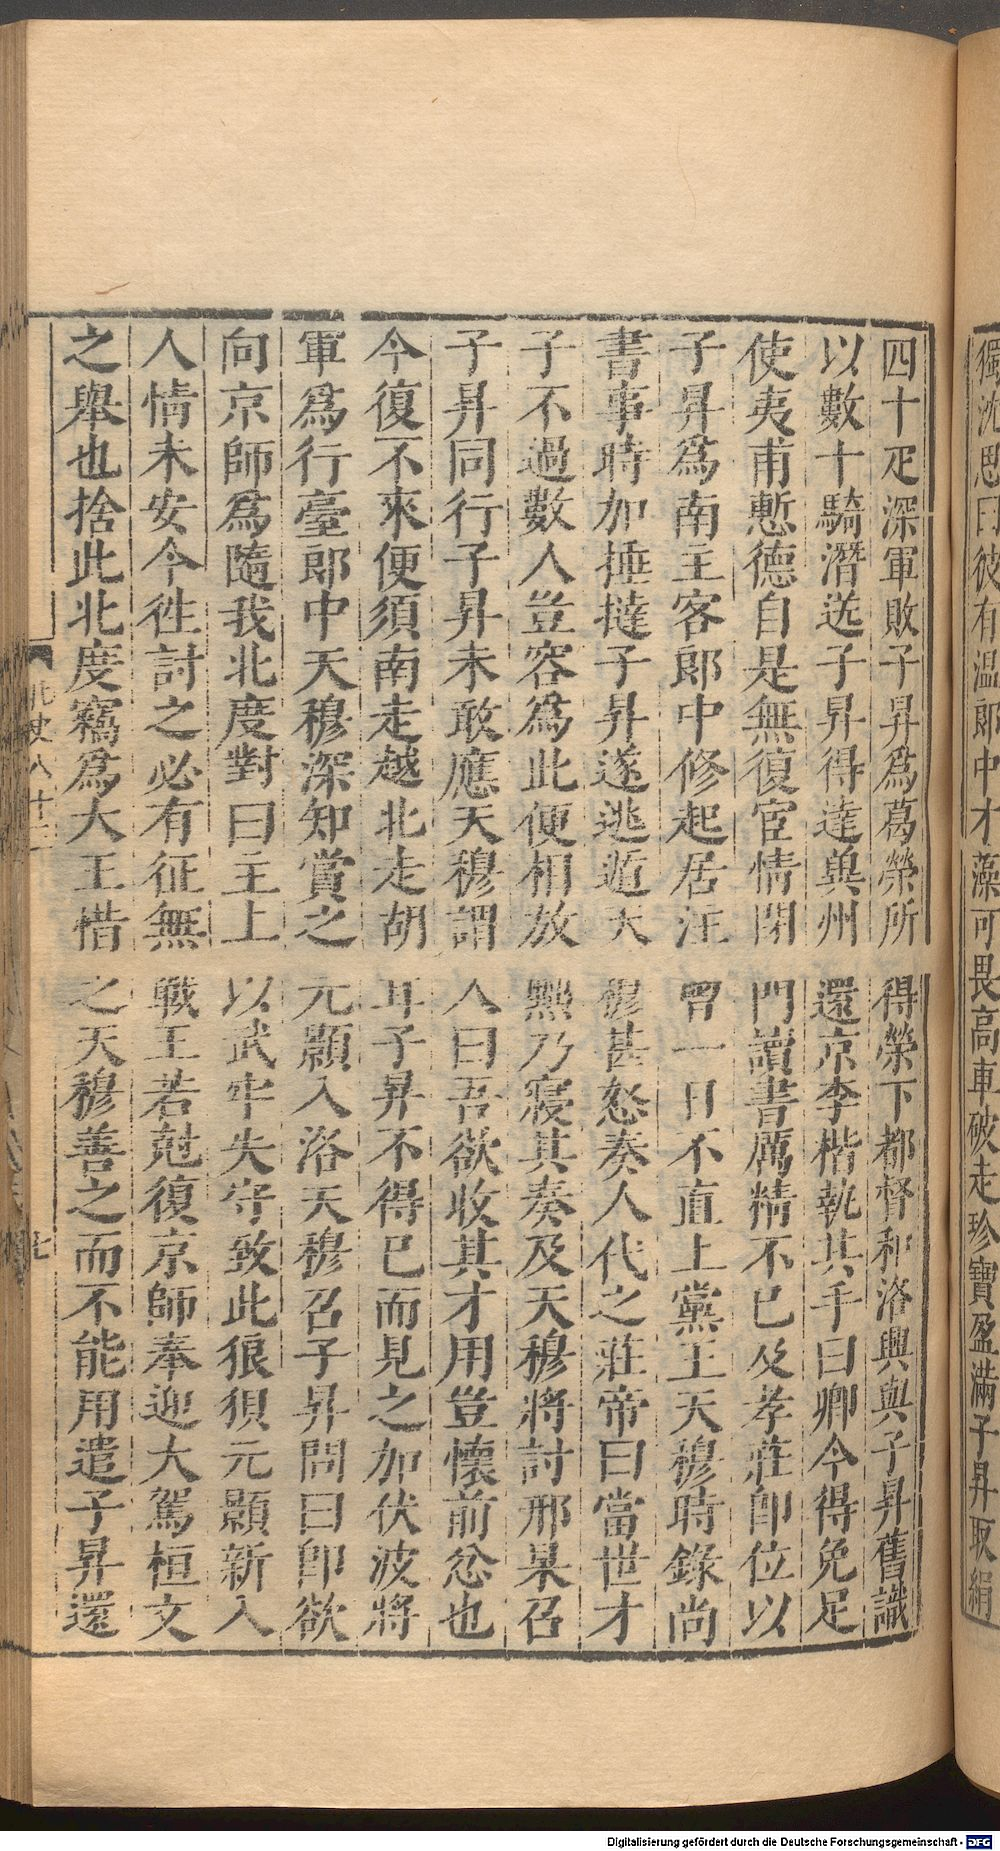 獨沈思曰彼有溫郎中才藻可畏高車破走珍寶盈滿子昇取絹
四十疋深軍敗子昇爲葛榮所得榮下都督和洛興與子昇舊識
以數十騎潛送子昇得達兾州還京李楷執其手曰卿今得免足
使夷甫慙德自是無復宦情閉門讀書厲精不已及孝莊即位以
子昇爲南主客郎中修起居注曾一日不直上黨王天穆時錄尚
書事將加捶撻子昇遂逃遁天穆甚怒奏人代之莊帝曰當世才
子不過數人豈容爲此便相放黜乃寢其奏及天穆將討邢杲召
子昇同行子昇未敢應天穆謂人曰吾欲收其才用豈懷前忿也
今復不來便須南走越北走胡耳子昇不得已而見之加伏波將
軍爲行臺郎中天穆深知賞之元顥入洛天穆召子昇問曰即欲
向京師爲隨我北度對曰主上以武牢失守致此狼狽元顥新入
人情未安今徃討之必有征無戰王若尅復京師奉迎大駕桓文
之舉也捨此北度竊爲大王惜之天穆善之而不能用遣子昇還
北史八十三
七
Digitalisierung gefördert durch die Deutsche Forschungsgemeinschaft - DFG